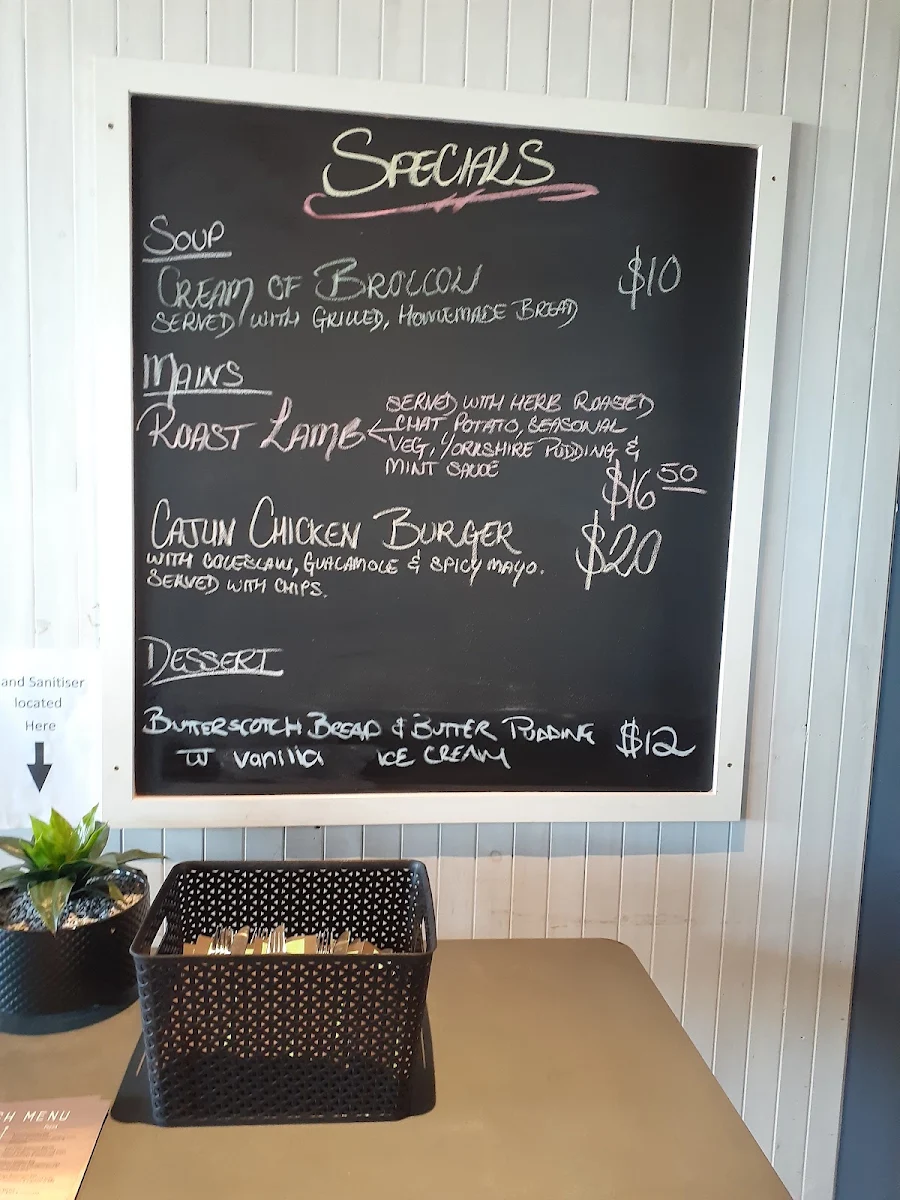 SPECIALS
SOUP
CREAM OF BROCCOLI $10
SERVED WITH GRILLED, HOMEMADE BREAD
MAINS
ROAST LAMB
SERVED WITH HERB ROASTED
CHAT POTATO, SEASONAL
VEG, YORKSHIRE PUDDING &
MINT SAUCE
$16 50
CAJUN CHICKEN BURGER $20
WITH COLESLAW, GUACAMOLE & SPICY MAYO.
SERVED WITH CHIPS.
DESSERT
BUTTERSCOTCH BREAD & BUTTER PUDDING $12
W vanilla ICE CREAM
and Sanitiser
located
Here
CH MENU